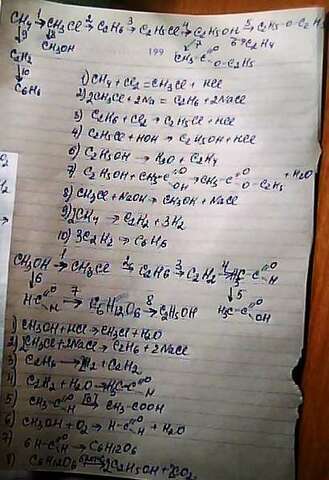 CH4 →1 CH3Cl →2 C2H6 →3 C2H5Cl →4 C2H5OH →5 C2H5-O-C2H5
↓9 ↓8 199 ↙7 6↘ C2H4
C2H2 CH3OH CH3-C=O O-C2H5
↓10
C6H6
1) CH4 + Cl2 = CH3Cl + HCl
2) 2CH3Cl + 2Na = C2H6 + 2NaCl
3) C2H6 + Cl2 → C2H5Cl + HCl
4) C2H5Cl + HOH → C2H5OH + HCl
6) C2H5OH → H2O + C2H4
7) C2H5OH + CH3-C=O OH → CH3-C=O O-C2H5 + H2O
8) CH3Cl + NaOH → CH3OH + NaCl
9) 2CH4 → C2H2 + 3H2
10) 3C2H2 → C6H6
CH3OH →1 CH3Cl →2 C2H6 →3 C2H2 →4 H3C-C=O H
↓6 ↓5
H-C=O H →7 C6H12O6 →8 C2H5OH H3C-C=O OH
1) CH3OH + HCl → CH3Cl + H2O
2) 2CH3Cl + 2Na → C2H6 + 2NaCl
3) C2H6 → H2 + C2H2
4) C2H2 + H2O → H3C-C=O H
5) CH3-C=O H →[O] CH3-COOH
6) CH3OH + O2 → H-C=O H + H2O
7) 6H-C=O H → C6H12O6
8) C6H12O6 → 2C2H5OH + 2CO2